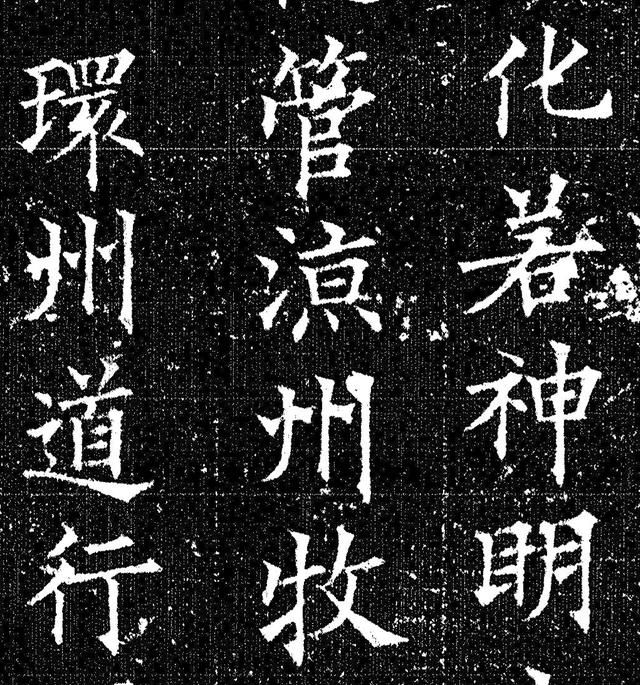 化若神明
管涼州牧
環州道行